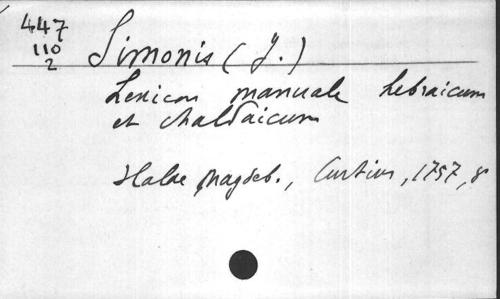 447
110
2
Simonis (J.)
Lexicon manuale hebraicum
et chaldaicum
Halae Magdeb., Curtius, 1757, 8